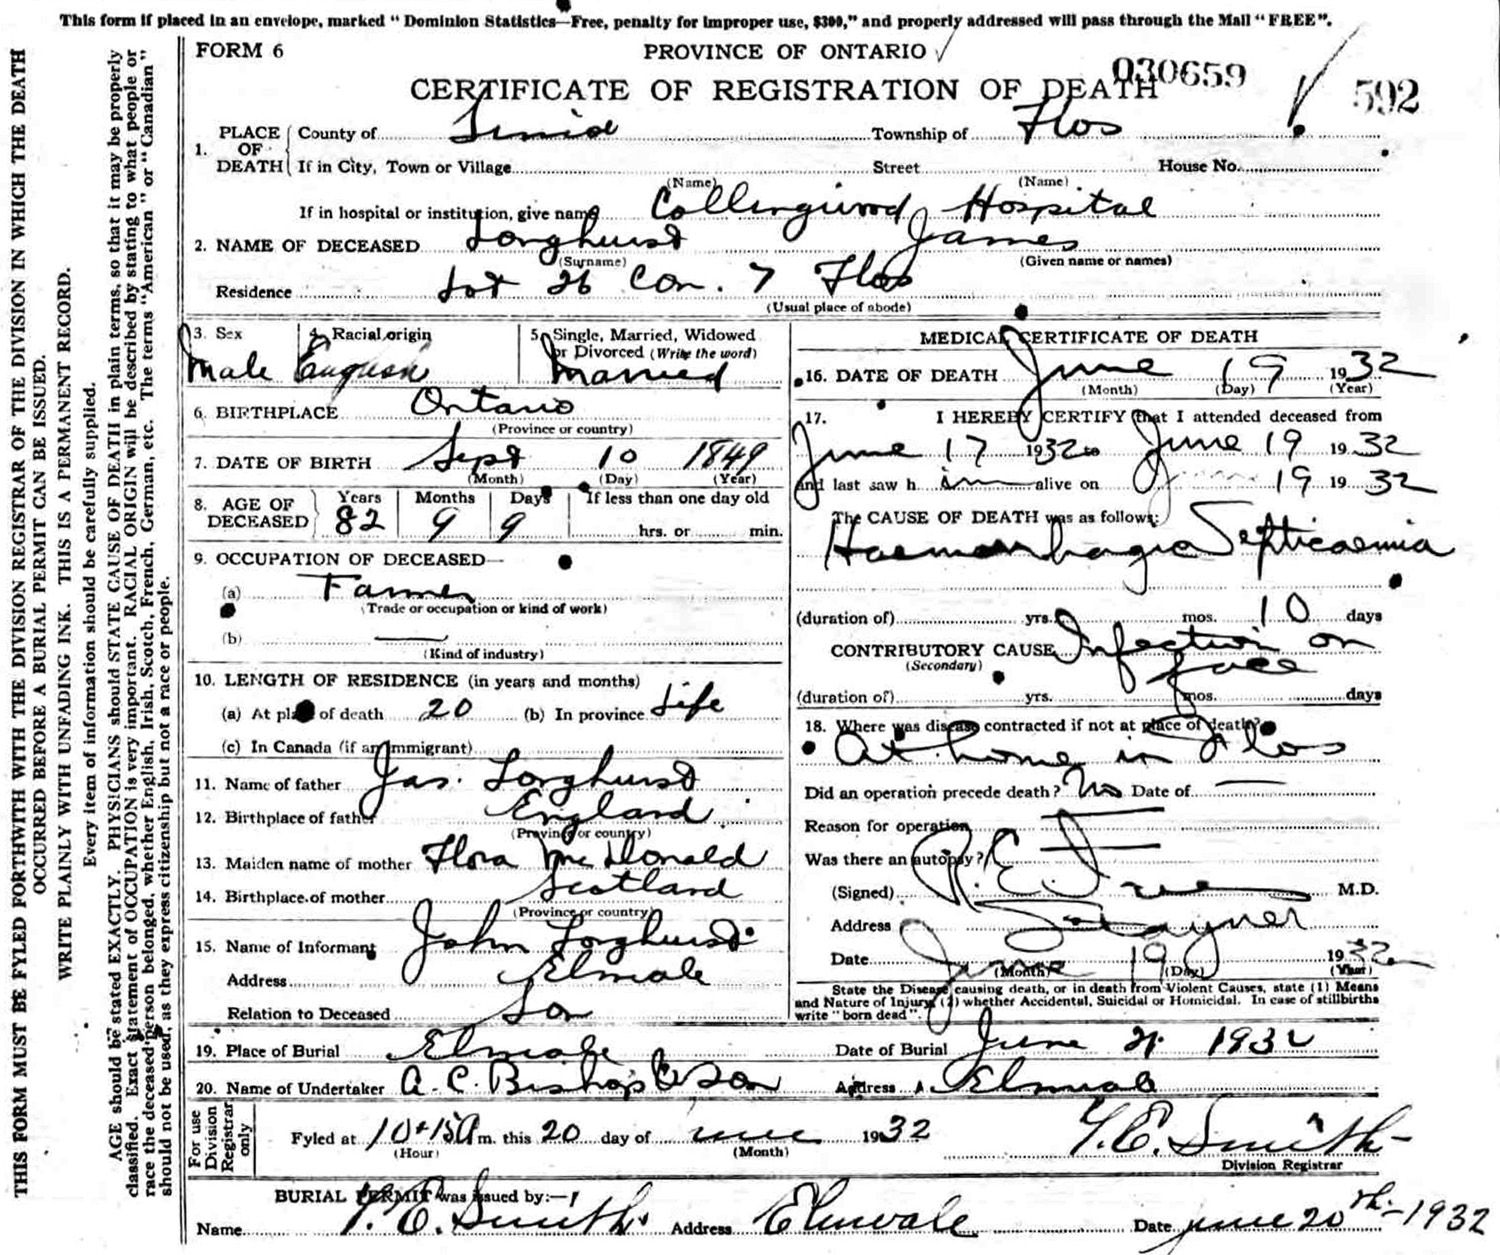 This form if placed in an envelope, marked "Dominion Statistics—Free, penalty for improper use, $300," and properly addressed will pass through the Mail "FREE".
THIS FORM MUST BE FYLED FORTHWITH WITH THE DIVISION REGISTRAR OF THE DIVISION IN WHICH THE DEATH
OCCURRED BEFORE A BURIAL PERMIT CAN BE ISSUED.
WRITE PLAINLY WITH UNFADING INK. THIS IS A PERMANENT RECORD.
Every item of information should be carefully supplied.
AGE should be stated EXACTLY. PHYSICIANS should STATE CAUSE OF DEATH in plain terms, so that it may be properly
classified. Exact statement of OCCUPATION is very important. RACIAL ORIGIN will be described by stating to what people or
race the deceased person belonged, whether English, Irish, Scotch, French, German, etc. The terms "American" or "Canadian"
should not be used, as they express citizenship but not a race or people.
FORM 6 PROVINCE OF ONTARIO
CERTIFICATE OF REGISTRATION OF DEATH 030659 592
1. PLACE OF DEATH County of Simcoe Township of Flos
If in City, Town or Village Street House No.
(Name) (Name)
If in hospital or institution, give name Collingwood Hospital
2. NAME OF DECEASED Longhurst James
(Surname) (Given name or names)
Residence Lot 26 Con. 7 Flos
(Usual place of abode)
3. Sex 4. Racial origin 5. Single, Married, Widowed
or Divorced (Write the word)
Male English Married
6. BIRTHPLACE Ontario
(Province or country)
7. DATE OF BIRTH Sept 10 1849
(Month) (Day) (Year)
8. AGE OF DECEASED Years Months Days If less than one day old
82 9 9 hrs. or min.
9. OCCUPATION OF DECEASED—
(a) Farmer
(Trade or occupation or kind of work)
(b) —
(Kind of industry)
10. LENGTH OF RESIDENCE (in years and months)
(a) At place of death 20 (b) In province Life
(c) In Canada (if an immigrant)
11. Name of father Jas. Longhurst
12. Birthplace of father England
(Province or country)
13. Maiden name of mother Flora McDonald
14. Birthplace of mother Scotland
(Province or country)
15. Name of Informant John Longhurst
Address Elmvale
Relation to Deceased Son
MEDICAL CERTIFICATE OF DEATH
16. DATE OF DEATH June 19 1932
(Month) (Day) (Year)
17. I HEREBY CERTIFY that I attended deceased from
June 17 1932 to June 19 1932
and last saw him alive on June 19 1932
The CAUSE OF DEATH was as follows:
Haemorrhagic Septicaemia
(duration of) yrs. mos. 10 days
CONTRIBUTORY CAUSE Infection on
(Secondary) face
(duration of) yrs. mos. days
18. Where was disease contracted if not at place of death?
At home in Flos
Did an operation precede death? No Date of —
Reason for operation —
Was there an autopsy? —
(Signed) R. E. M.D.
Address Stayner
Date June 19 1932
(Month) (Day) (Year)
State the Disease causing death, or in death from Violent Causes, state (1) Means
and Nature of Injury, (2) whether Accidental, Suicidal or Homicidal. In case of stillbirths
write "born dead".
19. Place of Burial Elmvale Date of Burial June 21 1932
20. Name of Undertaker A. C. Bishop & Son Address Elmvale
For use Division Registrar only
Fyled at 10.15 A m. this 20 day of June 1932 T. E. Smith
(Hour) (Month) Division Registrar
BURIAL PERMIT was issued by:—
Name T. E. Smith Address Elmvale Date June 20th - 1932